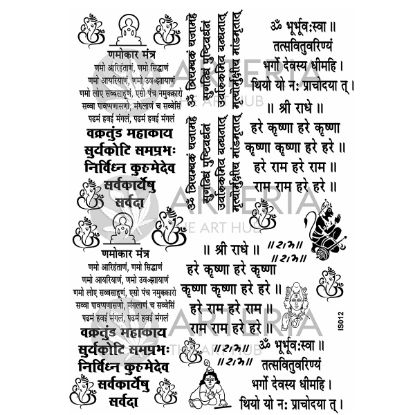 णमोकार मंत्र
णमो अरिहंताणं, णमो सिद्धाणं
णमो आयरियाणं, णमो उव-ज्झायाणं
णमो लोए सव्वसाहूणं, एसो पंच नमुक्कारो
सव्वा पावप्पणासणो, मंगलाणं च सव्वेसिं
पढमं हवई मंगलं, पढमं हवई मंगलं
वक्रतुंड महाकाय
सुर्यकोटि समप्रभः
निर्विघ्न कुरुमेदेव
सर्वकार्येषु
सर्वदा
ॐ त्रियम्बकं यजामहे
सुगन्धिं पुष्टिवर्धनं
उर्वारुकमिव बन्धनात्
ॐ त्रियम्बकं यजामहे
सुगन्धिं पुष्टिवर्धनं
उर्वारुकमिव बन्धनात्
ॐ भूर्भूवःस्वा ॥
तत्सवितुवरिण्यं
भर्गो देवस्य धीमहि ।
थियो यो नः प्राचोदयात् ।
॥ श्री राधे ॥
हरे कृष्णा हरे कृष्णा
कृष्णा कृष्णा हरे हरे
हरे राम हरे राम ॥
राम राम हरे हरे ॥
ARTERIA
THE ART HUB
णमोकार मंत्र
णमो अरिहंताणं, णमो सिद्धाणं
णमो आयरियाणं, णमो उव-ज्झायाणं
णमो लोए सव्वसाहूणं, एसो पंच नमुक्कारो
सव्वा पावप्पणासणो, मंगलाणं च सव्वेसिं
पढमं हवई मंगलं, पढमं हवई मंगलं
वक्रतुंड महाकाय
सुर्यकोटि समप्रभः
निर्विघ्न कुरुमेदेव
सर्वकार्येषु
सर्वदा
॥ श्री राधे ॥
हरे कृष्णा हरे कृष्णा
कृष्णा कृष्णा हरे हरे
हरे राम हरे राम ॥
राम राम हरे हरे ॥
॥राम॥
॥राम॥
॥राम॥
॥राम॥
ॐ भूर्भूवःस्वा ॥
तत्सवितुवरिण्यं
भर्गो देवस्य धीमहि ।
थियो यो नः प्राचोदयात् ।
IS012